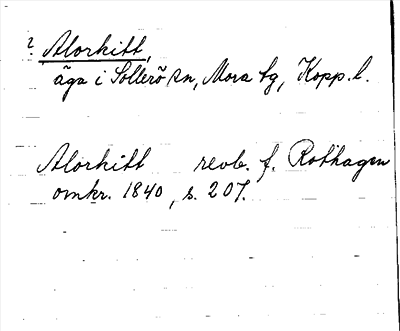 ? Alorkitt,
äga i Sollerö sn, Mora tg, Kopp. l.
Alorkitt revb. f. Rothagen
omkr. 1840, s. 207.